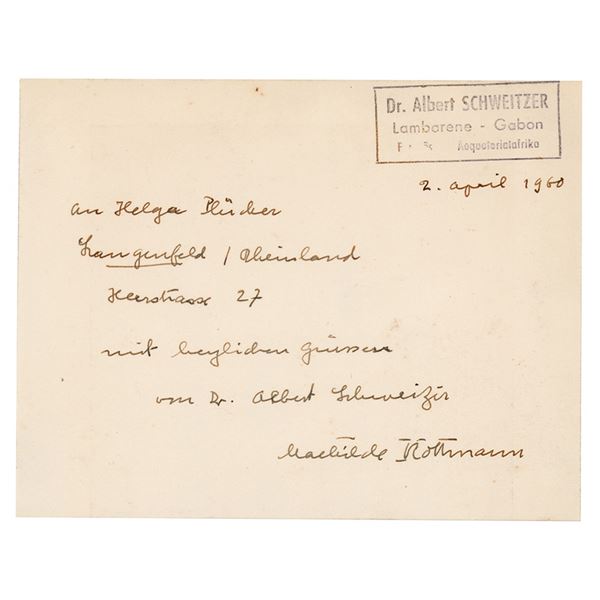 Dr. Albert SCHWEITZER
Lambarene - Gabon
Aequatorialafrika
2. april 1960
an Helga
Langenfeld / Rheinland
Heerstrasse 27
mit herzlichen Grüssen
von Dr. Albert Schweitzer
Mathilde Kottmann